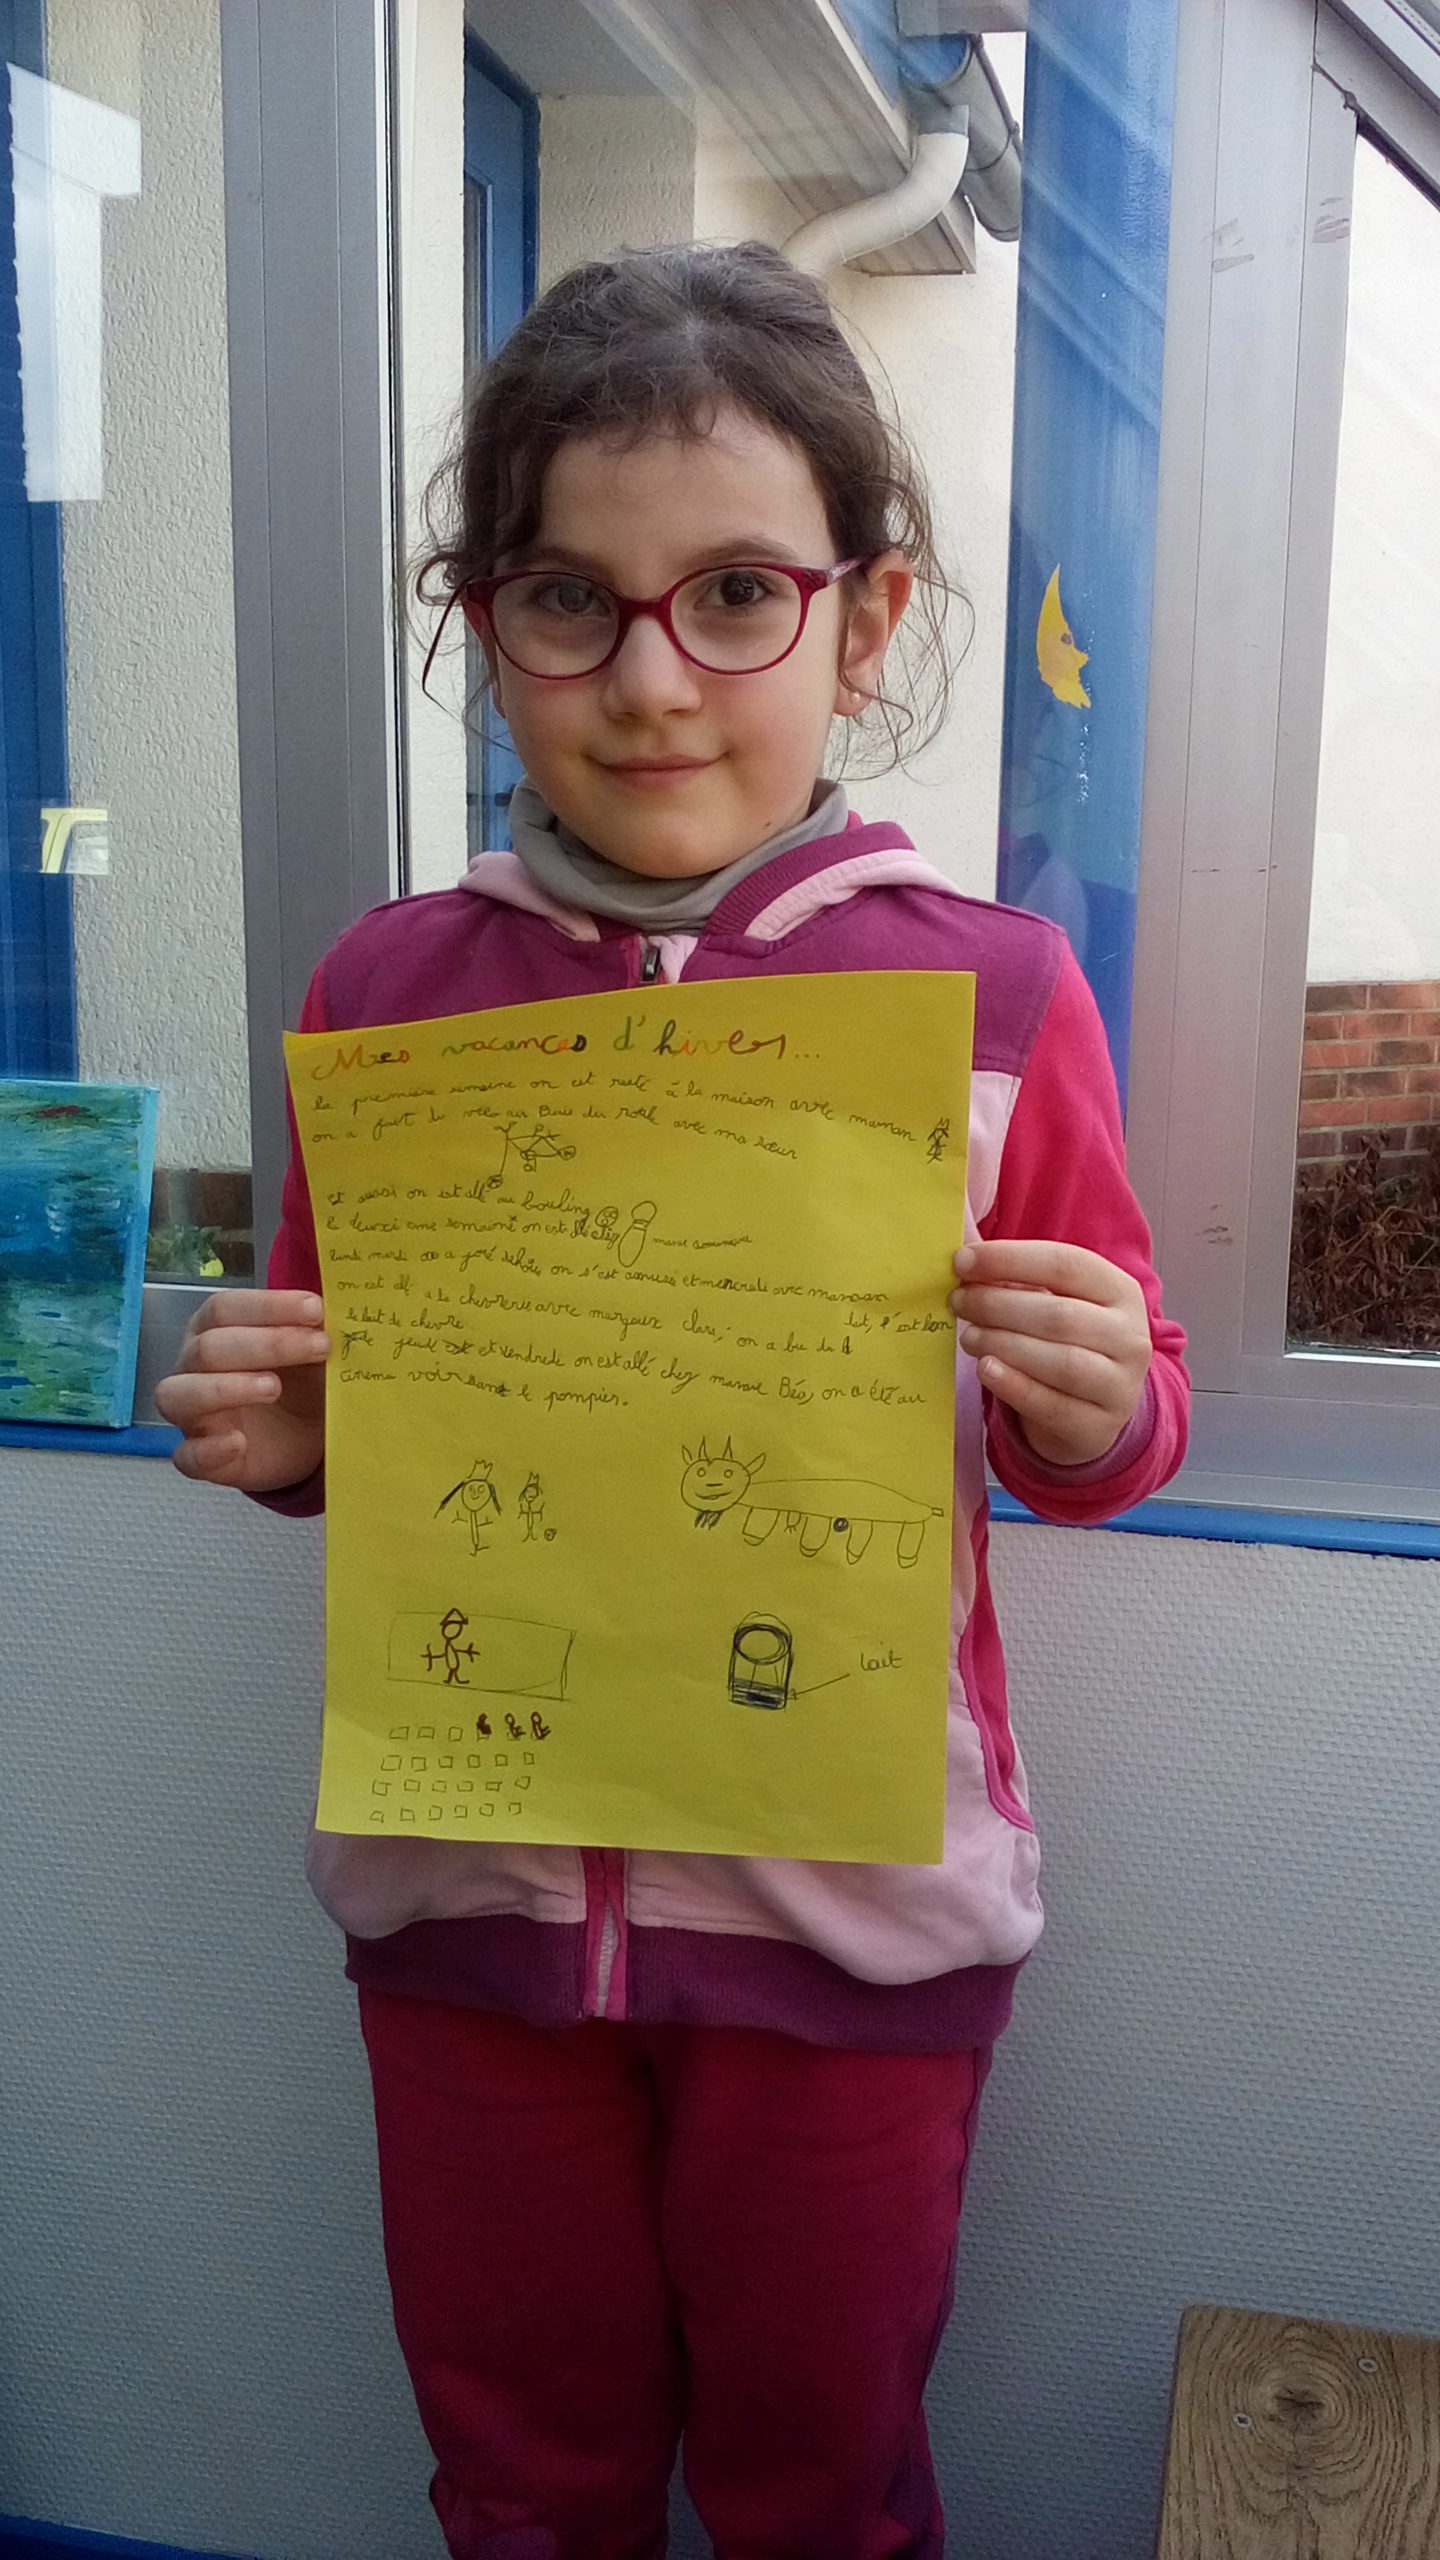 Mes vacances d'hiver...
la première semaine on est resté à la maison avec maman
on a fait du vélo au avec ma sœur
et aussi on est allé au bouling
le deuxi eme semaine on est
lundi mardi on a joué dehors on s'est amusé et mercredi avec maman
on est allé a la chevrerie avec margaux clara, on a bu du lait, c'est bon
le lait de chevre.
jeudi et vendredi on est allé chez mamie Béa, on a été au
cinema voir sam le pompier.
lait